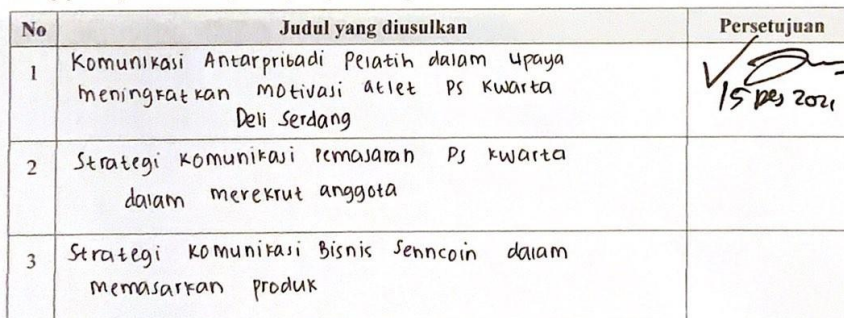 No Judul yang diusulkan Persetujuan
1 Komunikasi Antarpribadi Pelatih dalam upaya
meningkatkan motivasi atlet PS Kwarta
Deli Serdang
15 Des 2021
2 Strategi komunikasi pemasaran PS kwarta
dalam merekrut anggota
3 Strategi komunikasi Bisnis Senncoin dalam
memasarkan produk